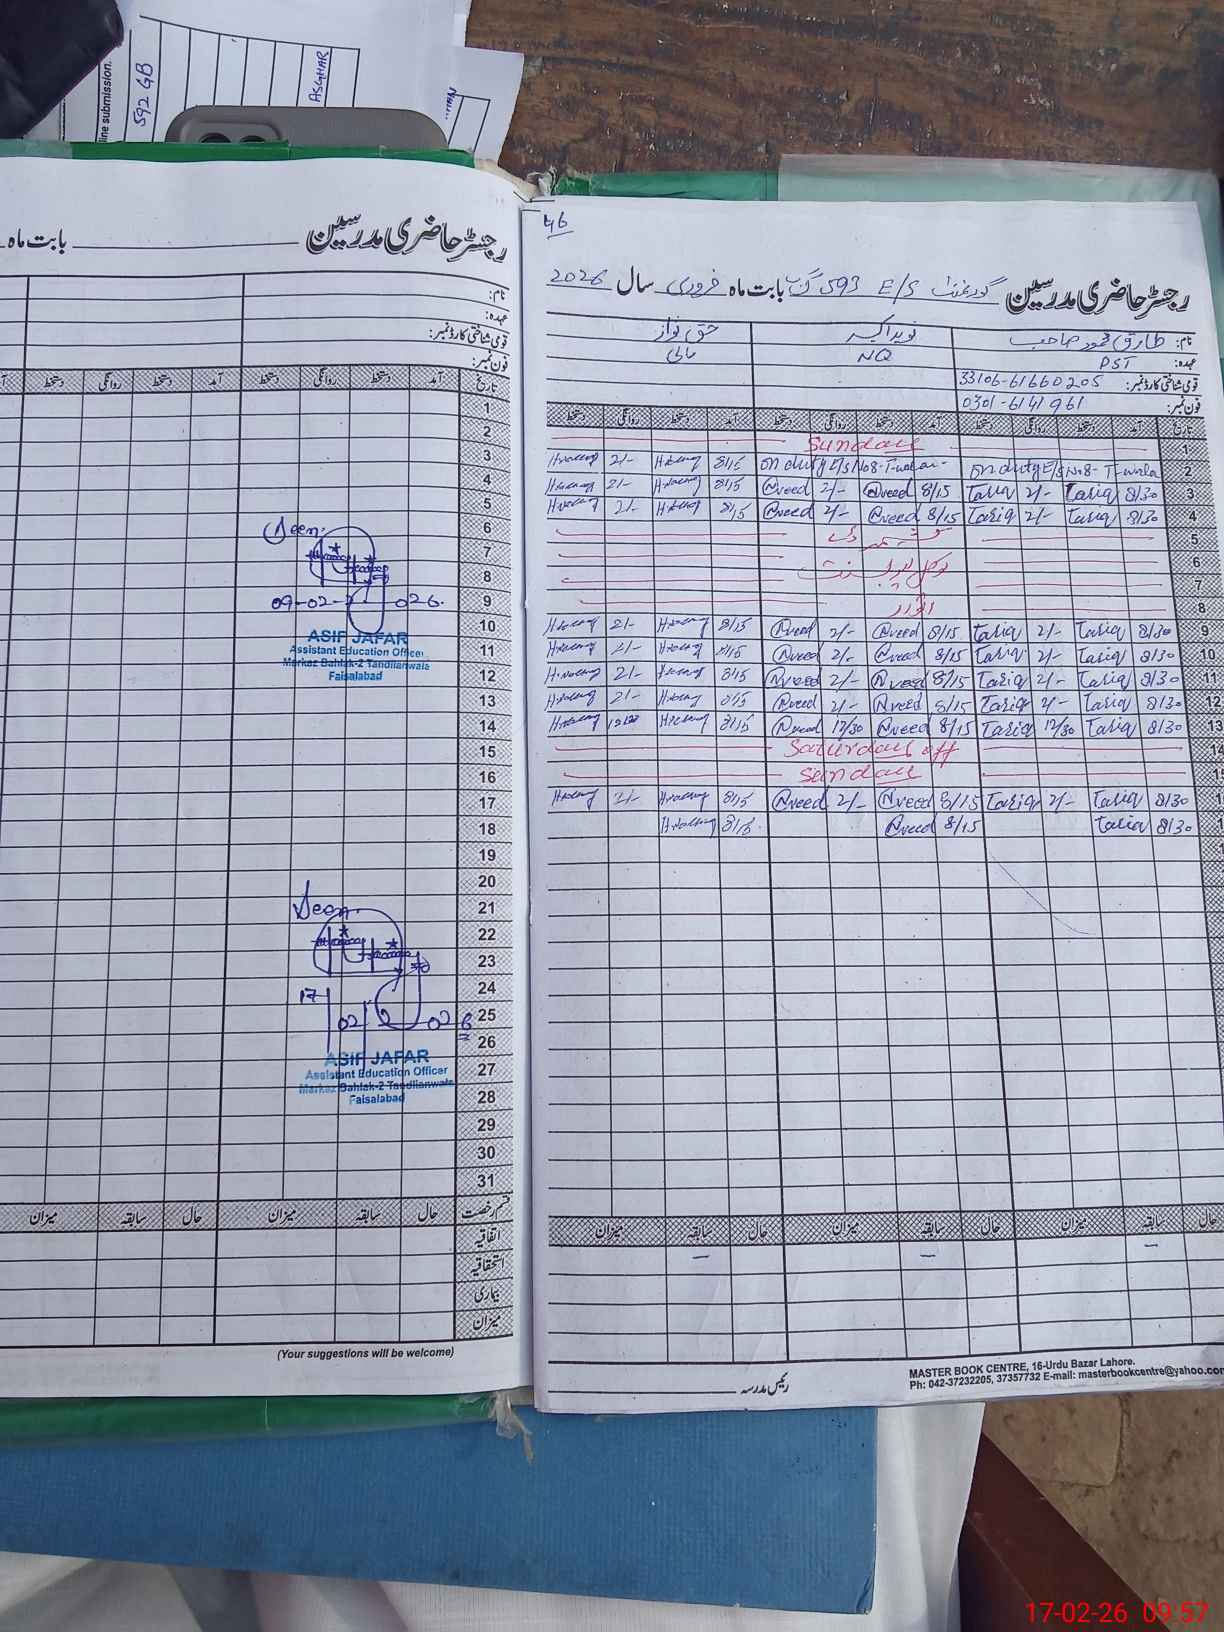 line submission.
592 GB
ASGHAR
رجسٹر حاضری مدرسین
بابت ماہ
نام:
عہدہ:
قومی شناختی کارڈ نمبر:
فون نمبر:
تاریخ آمد دستخط روانگی دستخط آمد دستخط روانگی دستخط
1
2
3
4
5
6
7
8
9
10
11
12
13
14
15
16
17
18
19
20
21
22
23
24
25
26
27
28
29
30
31
Seen.
09-02-2026.
ASIF JAFAR
Assistant Education Officer
Markaz Bahlak-2 Tandlianwala
Faisalabad
Seen.
17/02/2026
ASIF JAFAR
Assistant Education Officer
Markaz Bahlak-2 Tandlianwala
Faisalabad
قسم رخصت حال سابقہ میزان حال سابقہ میزان
اتفاقیہ
استحقاقیہ
بیماری
میزان
(Your suggestions will be welcome)
46
رجسٹر حاضری مدرسین گورنمنٹ E/S 593 گ ب بابت ماہ فروری سال 2026
نام: طارق محمود صاحب نوید اکبر حق نواز
عہدہ: PST NQ مالی
قومی شناختی کارڈ نمبر: 33106-61660205
فون نمبر: 0301-6141961
تاریخ آمد دستخط روانگی دستخط آمد دستخط روانگی دستخط آمد دستخط روانگی دستخط
1 Sunday
2 on duty E/S No8- T-wala on duty E/S No8- T-wala- 8/15 2/-
3 8/30 Tariq 2/- Tariq 8/15 Nveed 2/- Nveed 8/15 2/-
4 8/30 Tariq 2/- Tariq 8/15 Nveed 2/- Nveed 8/15 2/-
5 کشمیر ڈے
6
7
8 اتوار
9 8/30 Tariq 2/- Tariq 8/15 Nveed 2/- Nveed 8/15 2/-
10 8/30 Tariq 2/- Tariq 8/15 Nveed 2/- Nveed 8/15 2/-
11 8/30 Tariq 2/- Tariq 8/15 Nveed 2/- Nveed 8/15 2/-
12 8/30 Tariq 2/- Tariq 8/15 Nveed 2/- Nveed 8/15 2/-
13 8/30 Tariq 12/30 Tariq 8/15 Nveed 12/30 Nveed 8/15
14 Saturday off
Sunday
8/30 Tariq 2/- Tariq 8/15 Nveed 2/- Nveed 8/15 2/-
8/30 Tariq 8/15 Nveed 8/15
حال سابقہ میزان حال سابقہ میزان حال سابقہ میزان
رئیس مدرسہ
MASTER BOOK CENTRE, 16-Urdu Bazar Lahore.
Ph: 042-37232205, 37357732 E-mail: masterbookcentre@yahoo.com
17-02-26 09:57